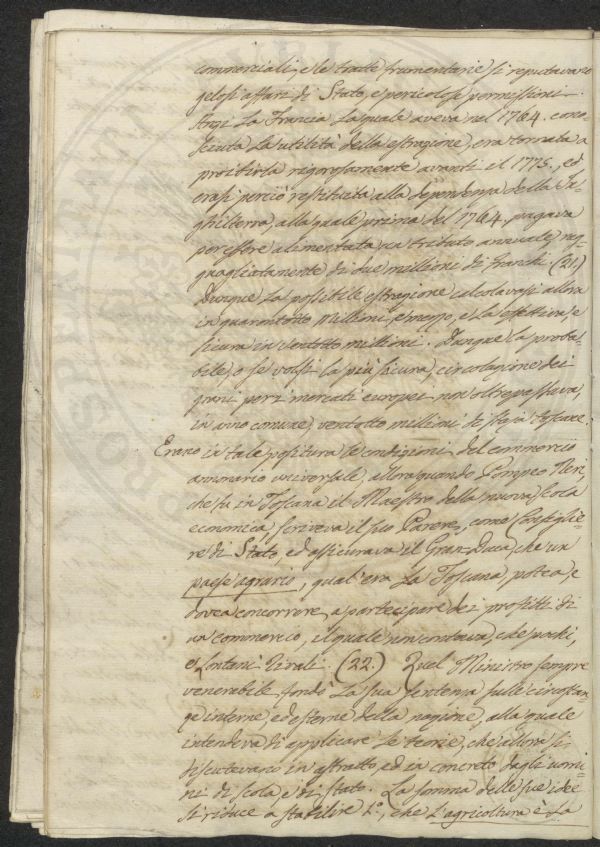 commerciali, e le tratte frumentarie si reputavano
gelosi affari di Stato, e pericolose permissioni.
Anzi La Francia La quale aveva nel 1764. cono-
sciuta La utilità della estrazione, era tornata a
proibirla rigorosamente avanti il 1775., ed
erasi perciò restituita alla dipendenza della In-
ghilterra, alla quale prima del 1764. pagava
per essere alimentata un tributo annuale rag-
guagliatamente di due millioni di franchi. (21.)
Dunque La possibile estrazione calcolavasi allora
in quarantotto millioni, e mezzo, e la effettiva, e
sicura in ventotto millioni. Dunque la proba-
bile, o se vuolsi la più sicura, circolazione dei
grani per i mercati europei non oltrepassava,
in anno comune, ventotto millioni di staja toscane.
Erano in tale positura le condizioni del commercio
annonario universale, allora quando Pompeo Neri,
che fu in Toscana il Maestro della nuova scola
economica, scriveva il suo Parere, come Consiglie-
re di Stato, ed assicurava il Gran-Duca, che un
paese agrario, qual'era La Toscana, potea, e
dovea concorrere a partecipare dei profitti di
un commercio, il quale non contava, che pochi,
e Lontani Rivali. (22.) Quel Ministro sempre
venerabile fondò La sua sentenza sulle circostan-
ze interne, ed esterne della nazione, alla quale
intendeva di applicare Le teorie, che allora si
discutevano in astratto, ed in concreto dagli uomi-
ni di scola, e di stato. La somma delle sue idee
si riduce a stabilire 1.°, che L'agricoltura è La